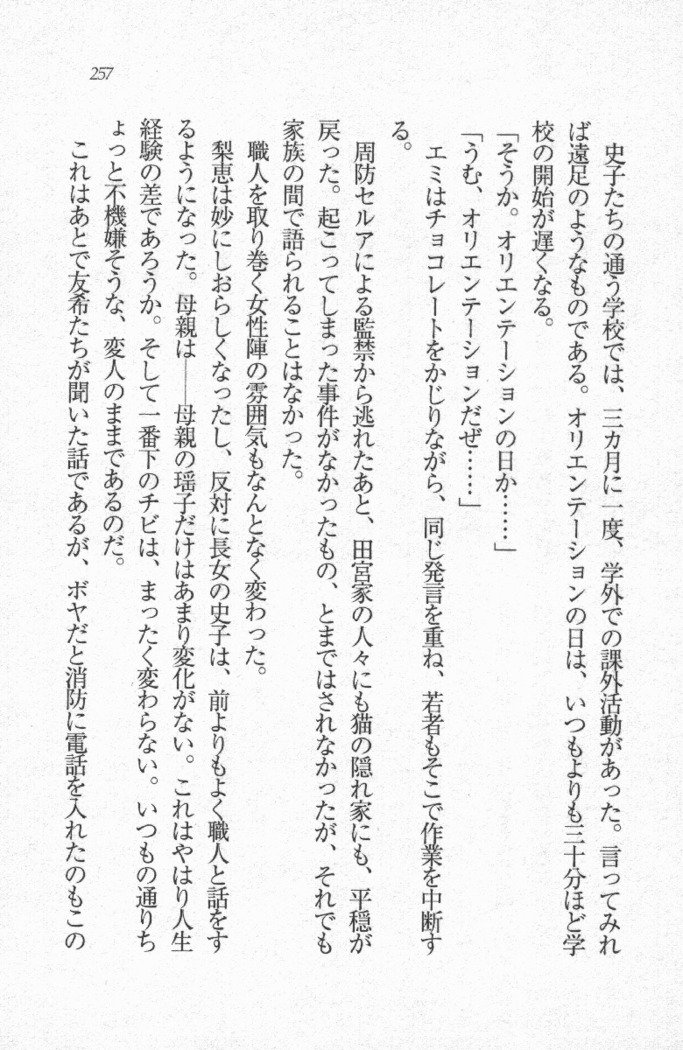 257
史子たちの通う学校では、三カ月に一度、学外での課外活動があった。言ってみれ
ば遠足のようなものである。オリエンテーションの日は、いつもよりも三十分ほど学
校の開始が遅くなる。
「そうか。オリエンテーションの日か……」
「うむ、オリエンテーションだぜ……」
エミはチョコレートをかじりながら、同じ発言を重ね、若者もそこで作業を中断す
る。
周防セルアによる監禁から逃れたあと、田宮家の人々にも猫の隠れ家にも、平穏が
戻った。起こってしまった事件がなかったもの、とまではされなかったが、それでも
家族の間で語られることはなかった。
職人を取り巻く女性陣の雰囲気もなんとなく変わった。
梨恵は妙にしおらしくなったし、反対に長女の史子は、前よりもよく職人と話をす
るようになった。母親は――母親の瑶子だけはあまり変化がない。これはやはり人生
経験の差であろうか。そして一番下のチビは、まったく変わらない。いつもの通りち
ょっと不機嫌そうな、変人のままであるのだ。
これはあとで友希たちが聞いた話であるが、ボヤだと消防に電話を入れたのもこの